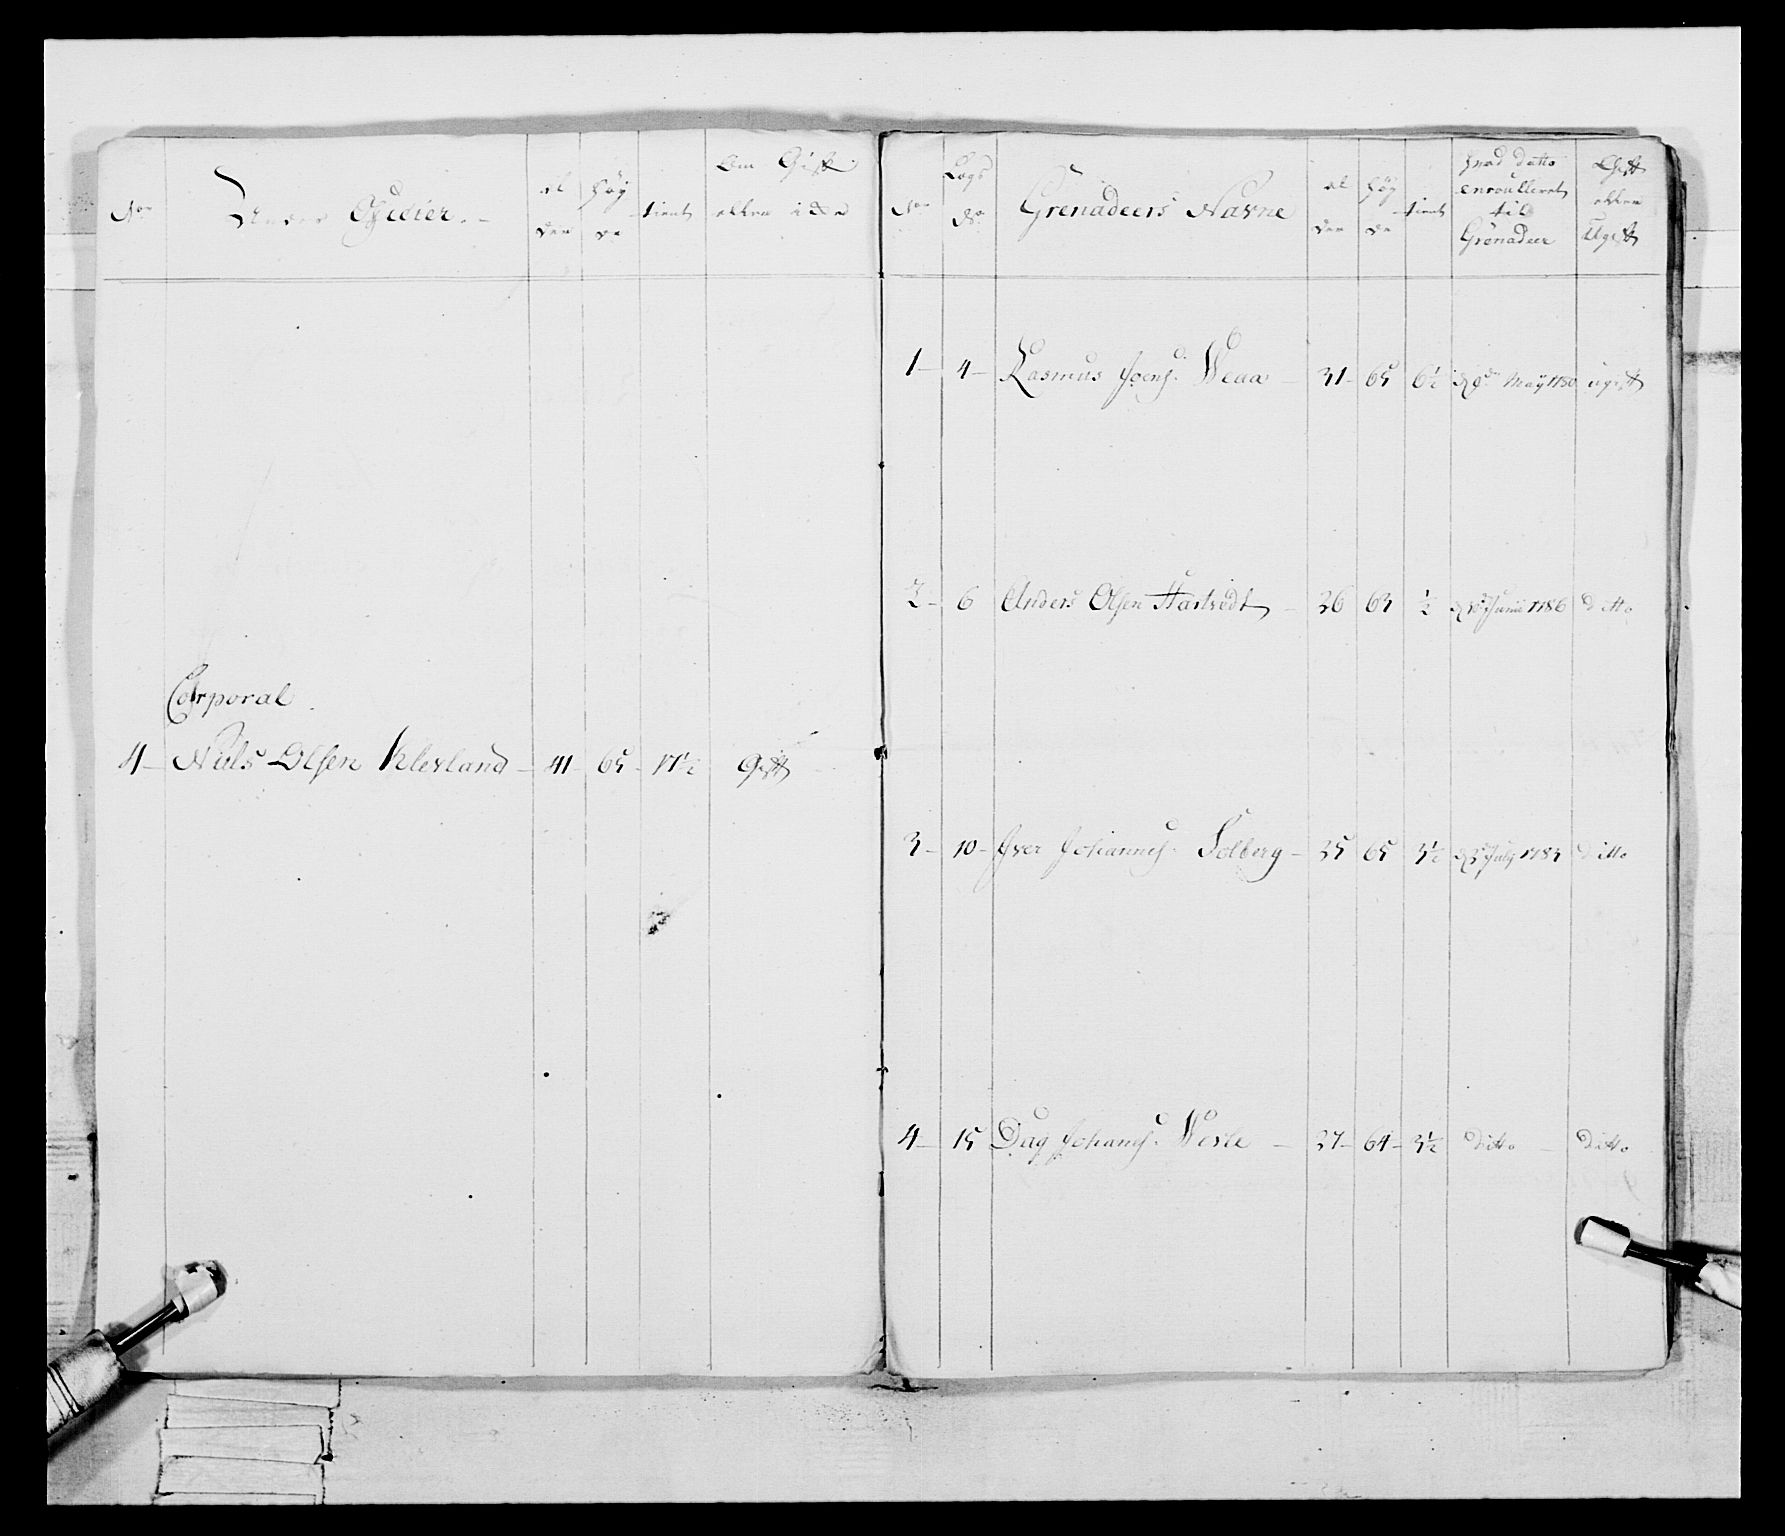 No
Under Officier.
al der
høy de
tient
Om Gift eller icke
Corporal
4 Niels Olsen Klevland 41 65 17½ Gift
No
Lægs No
Grenadeers Navne
al der
høy de
tient
hvad datto enroulleret til Grenadeer
Gift eller Ugift
1 4 Rasmus Joens. Weaa 31 65 6½ May 1780 ugift
2 6 Anders Olsen 26 63 ½ Junii 1786 ditto
3 10 Iver Johannes. Solberg 25 65 3½ July 1783 ditto
4 15 Dag Johanes. Wesle 27 64 3½ ditto ditto